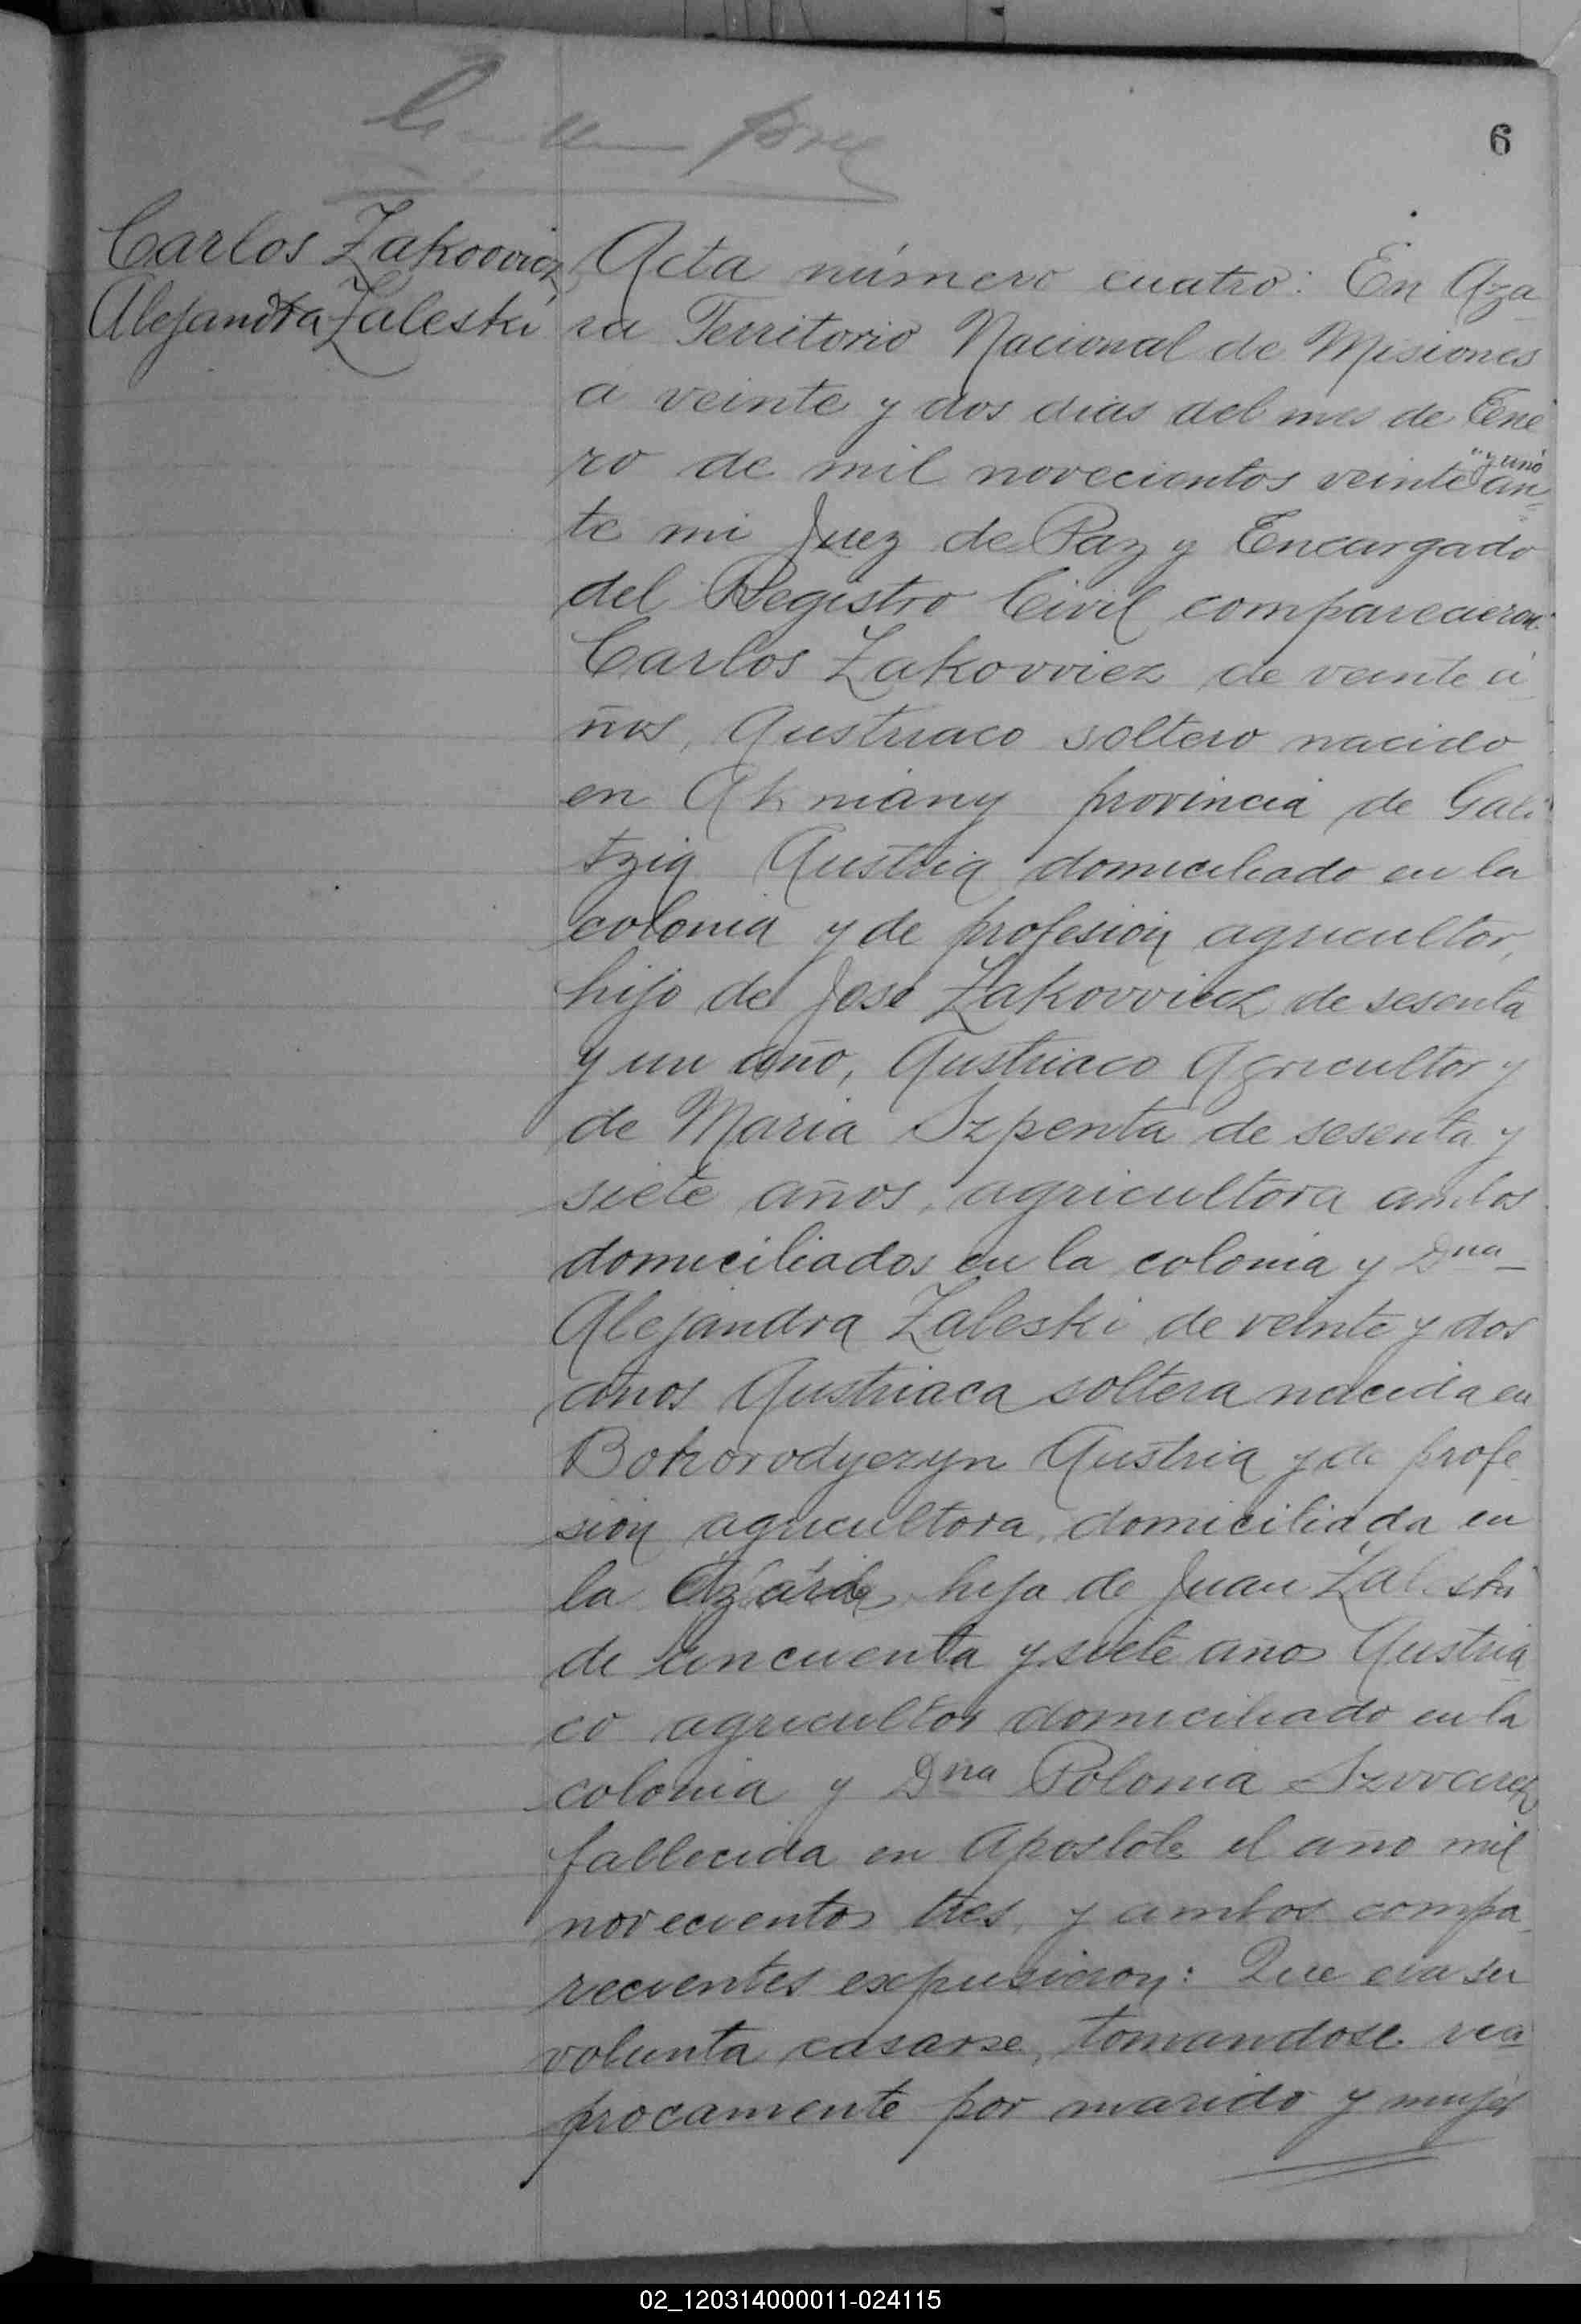 6
Carlos Zakovvicz
Alejandra Zaleski
Acta número cuatro: En Aza
ra Territorio Nacional de Misiones
á veinte y dos dias del mes de Ene
ro de mil novecientos veinte "y uno" an
te mi Juez de Paz y Encargado
del Registro Civil comparecieron:
Carlos Zakovviez de veinte a
ños, Austriaco soltero nacido
en provincia de Gali
tzia Austria domiciliado en la
colonia y de profesion agricultor,
hijo de José Zakovvicz de sesenta
y un año, Austriaco Agricultor y
de Maria Szpenta de sesenta y
siete años, agricultora ambos
domiciliados en la colonia y Dna
Alejandra Zaleski de veinte y dos
años Austriaca soltera nacida en
Bohorodyezyn Austria y de profe
sion agricultora, domiciliada en
la hija de Juan Zaleski
de cincuenta y siete años Austria
co agricultor domiciliado en la
colonia y Dna Polonia
fallecida en Apostole el año mil
novecientos tres, y ambos compa
recientes expusieron: Que era su
volunta casarse, tomandose reci
procamente por marido y mujer
02_120314000011-024115